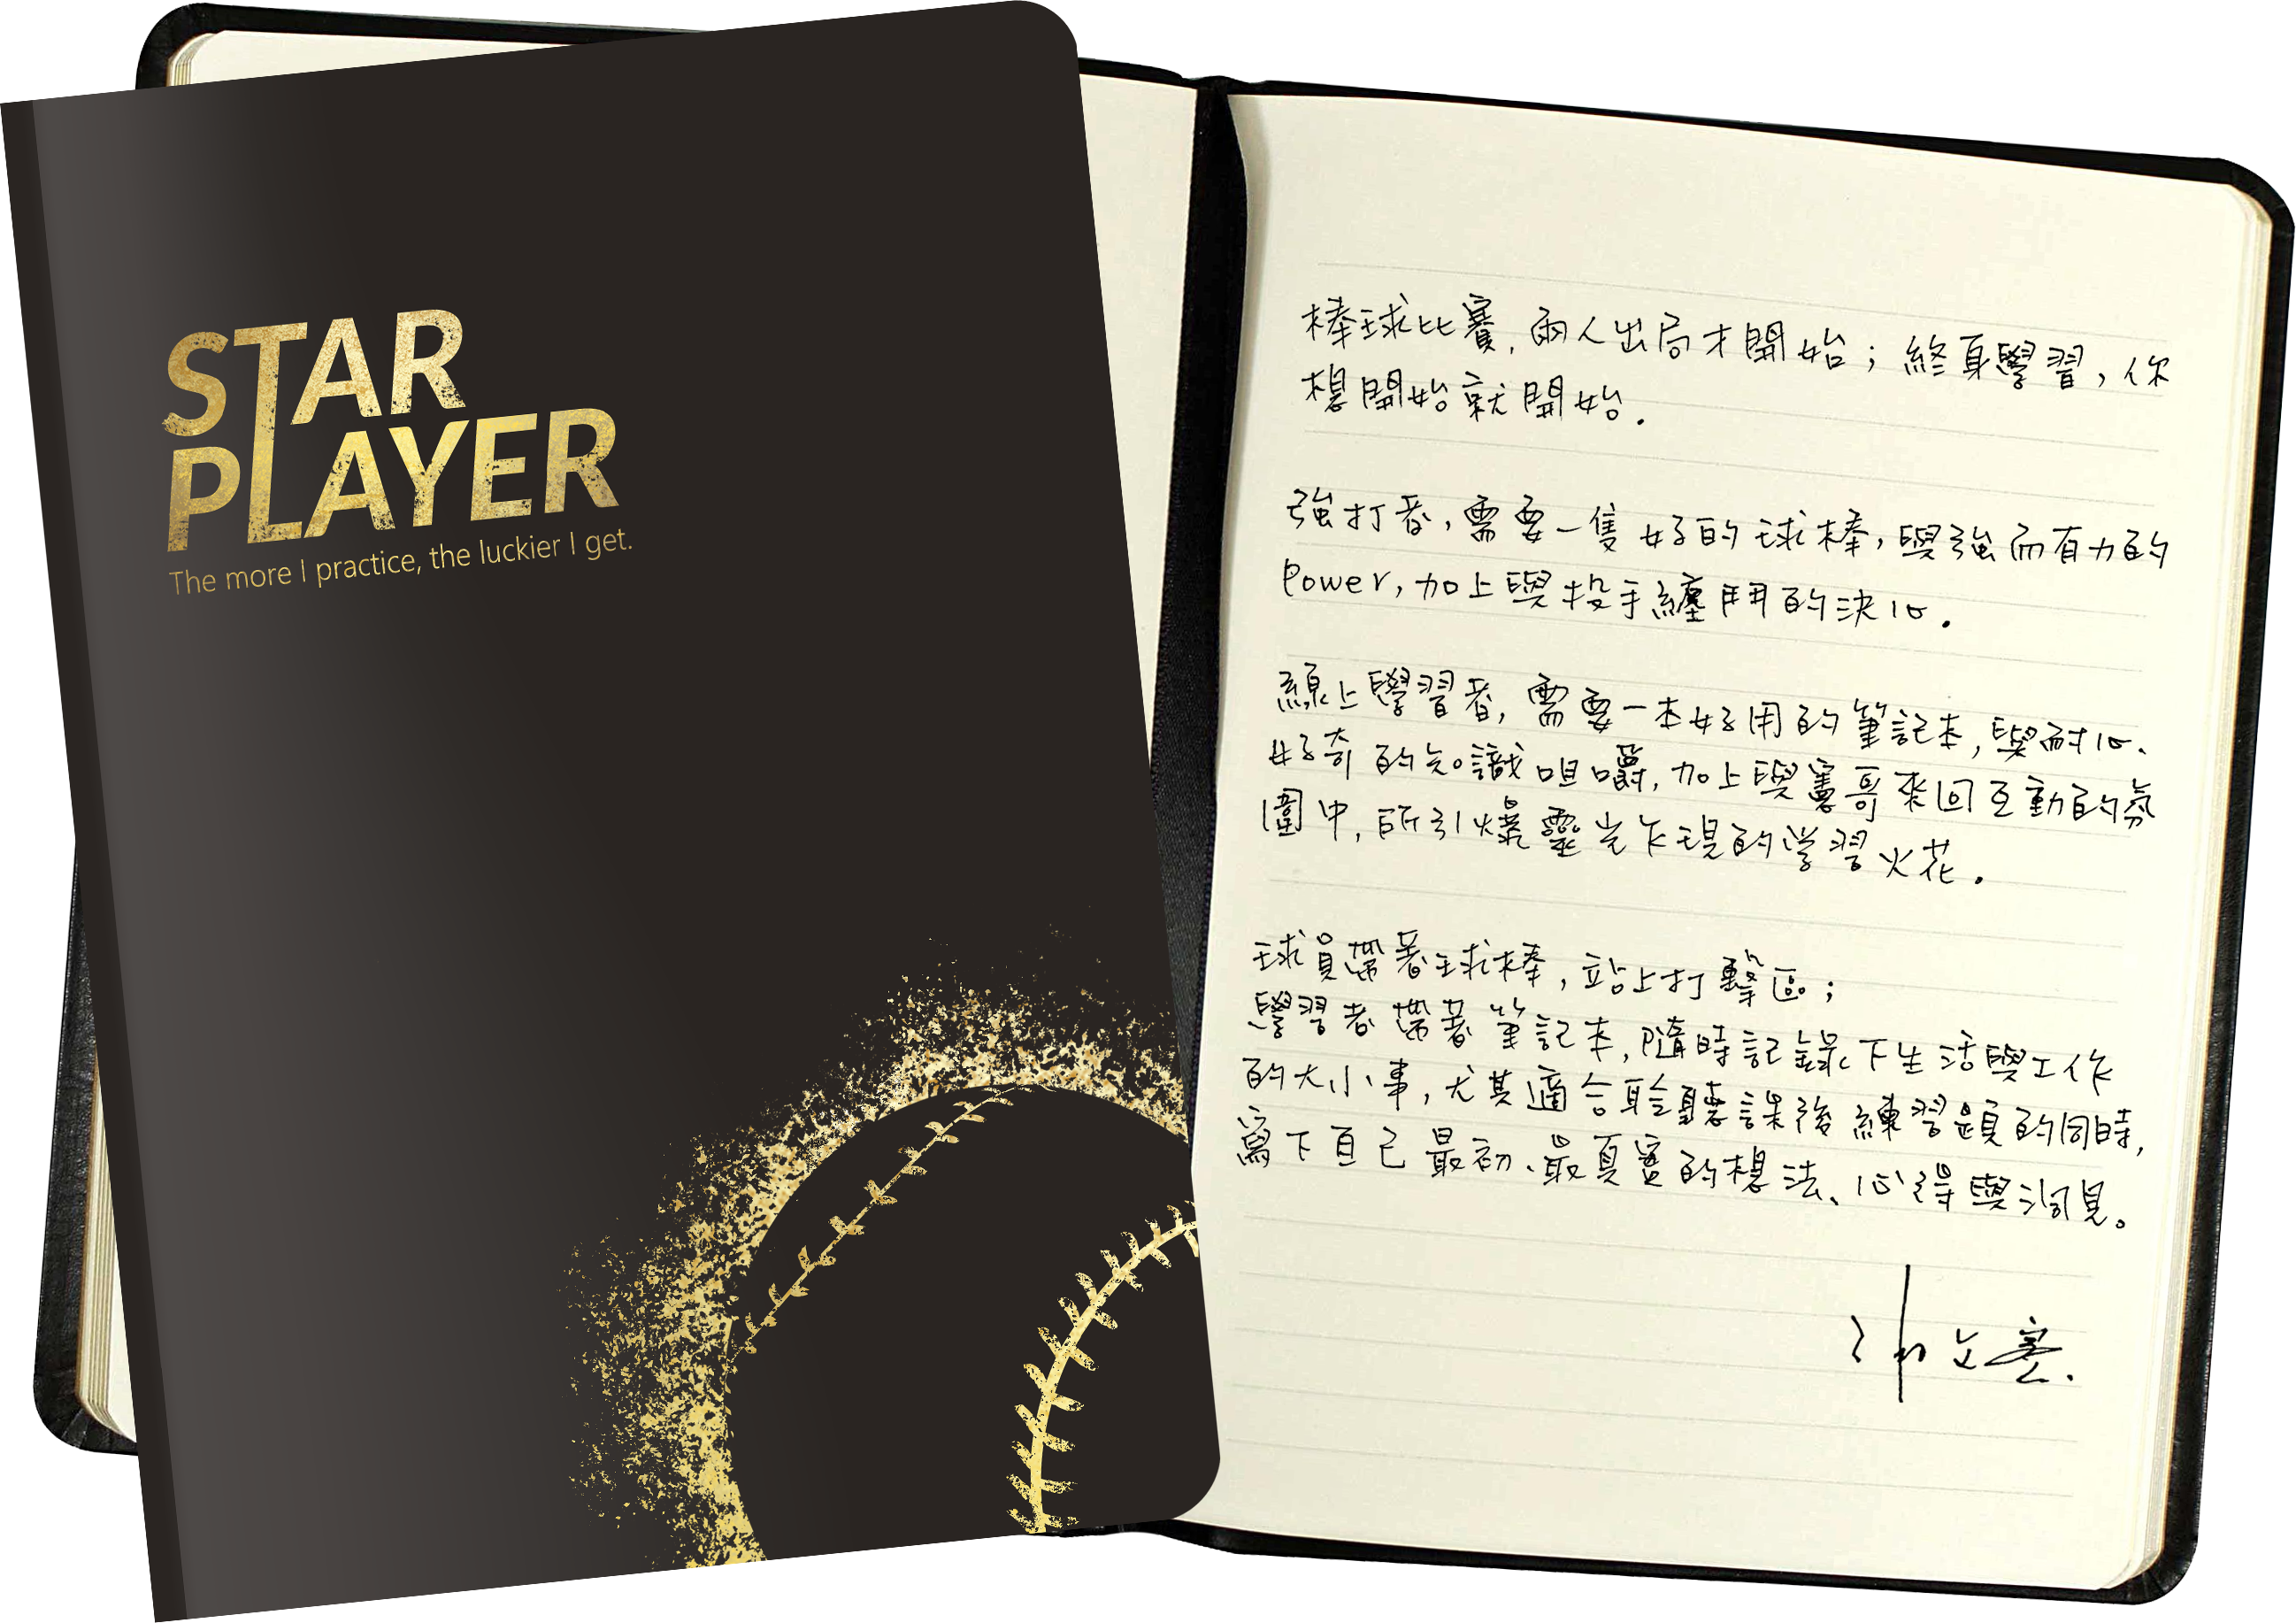 STAR
PLAYER
The more I practice, the luckier I get.
棒球比賽,兩人出局才開始;終身學習,你
想開始就開始.
強打者,需要一隻好的球棒,與強而有力的
Power,加上與投手纏鬥的決心.
線上學習者,需要一本好用的筆記本,與耐心、
好奇的知識咀嚼,加上與憲哥來回互動的氛
圍中,所引爆靈光乍現的学習火花.
球員帶著球棒,站上打擊區;
學習者帶著筆記本,隨時記錄下生活與工作
的大小事,尤其適合聆聽課後練習題的同時,
寫下自己最初、最真實的想法、心得與洞見。
謝文憲.